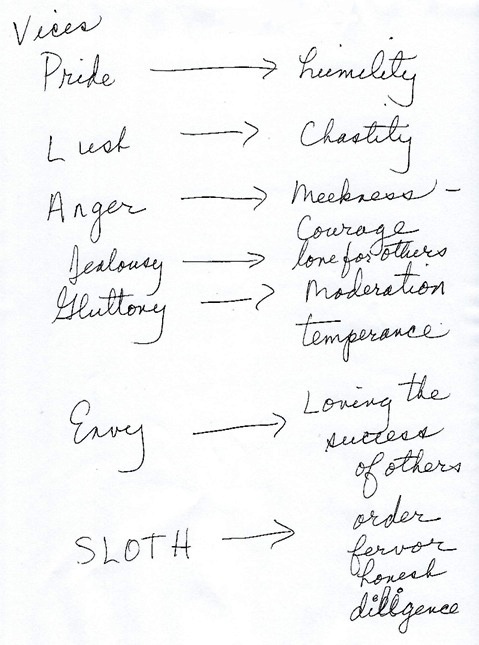 Vices
Pride → humility
Lust → Chastity
Anger → Meekness -
Courage
Jealousy → love for others
Gluttony → Moderation
temperance
Envy → Loving the
success
of others
SLOTH → order
fervor
honest
diligence